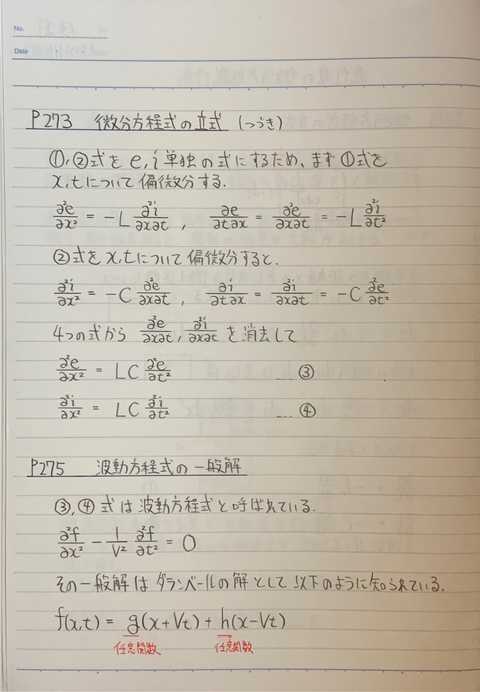 No.
Date
P273 微分方程式の立式 (つづき)
①,②式を e, i 単独の式にするため、まず①式を
x, tについて偏微分する.
∂²e/∂x² = -L ∂²i/∂x∂t , ∂e/∂t∂x = ∂²e/∂x∂t = -L ∂²i/∂t²
②式を x, tについて偏微分すると.
∂²i/∂x² = -C ∂²e/∂x∂t , ∂²i/∂t∂x = ∂²i/∂x∂t = -C ∂²e/∂t²
4つの式から ∂²e/∂x∂t, ∂²i/∂x∂t を消去して
∂²e/∂x² = LC ∂²e/∂t² … ③
∂²i/∂x² = LC ∂²i/∂t² … ④
P275 波動方程式の一般解
③,④ 式は波動方程式と呼ばれている.
∂²f/∂x² - 1/V² ∂²f/∂t² = 0
その一般解はダランベールの解として以下のように知られている.
f(x,t) = g(x+Vt) + h(x-Vt)
任意関数 任意関数